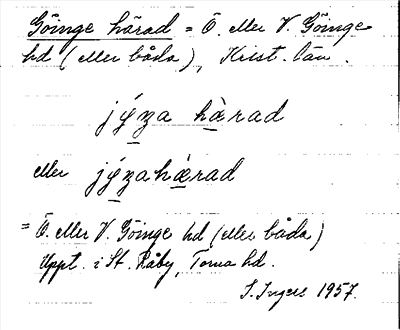 Göinge härad = Ö. eller V. Göinge
hd (eller båda), Krist. län.
jýza hàrad
eller jýzahæ̀rad
= Ö. eller V. Göinge hd (eller båda)
Uppt. i St. Råby, Torna hd.
I. Ingers 1957.